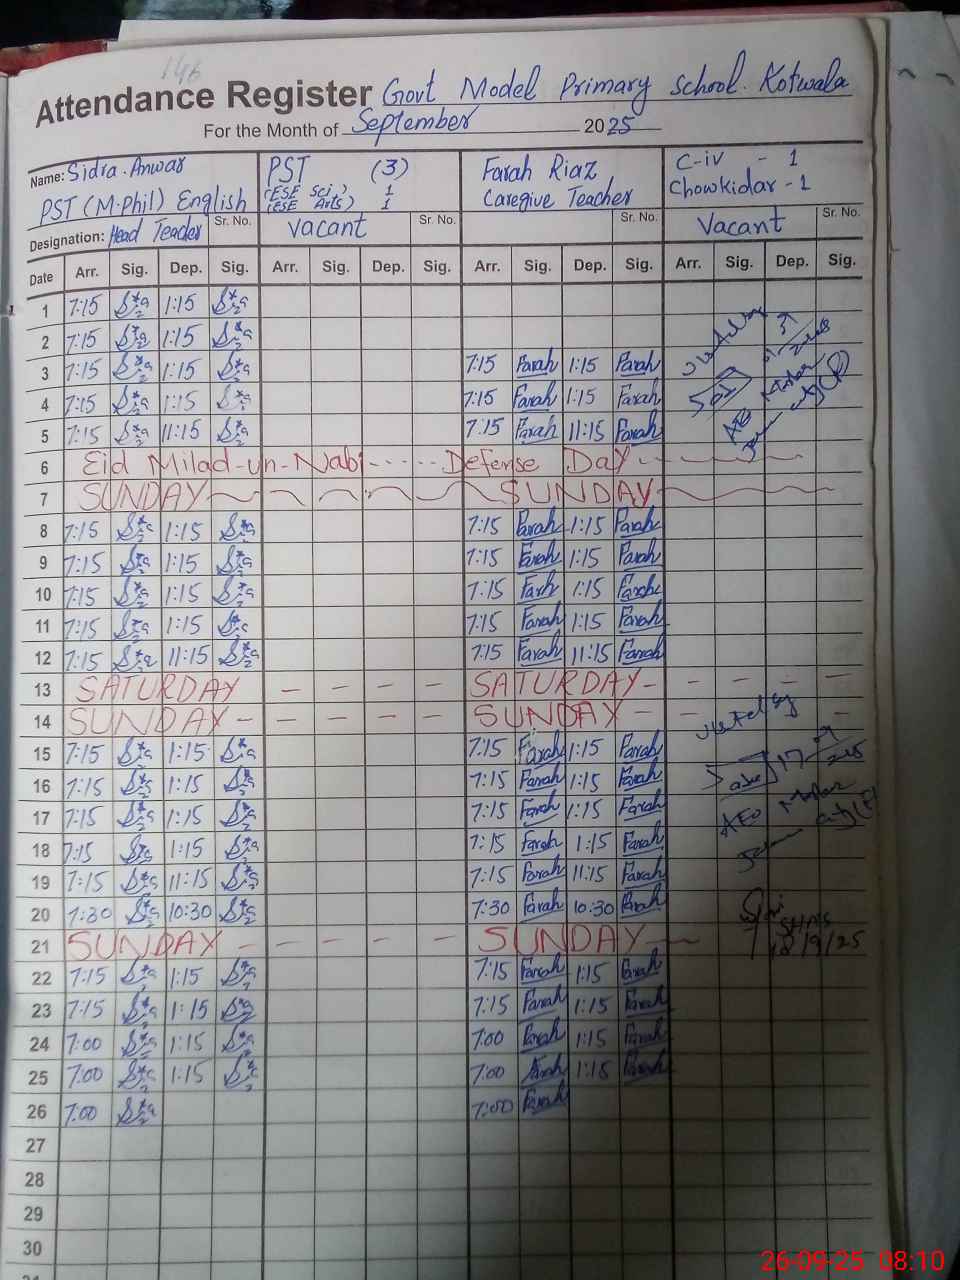 146
Attendance Register Govt Model Primary School. Kotwala
For the Month of September 2025
Name: Sidra Anwar PST (3) Farah Riaz C-iv - 1
PST (M.Phil) English (ESE Sci) 1 (ESE Arts) 1 Caregive Teacher Chowkidar - 1
Designation: Head Teacher Sr. No. Vacant Sr. No. Sr. No. Vacant Sr. No.
Date Arr. Sig. Dep. Sig. Arr. Sig. Dep. Sig. Arr. Sig. Dep. Sig. Arr. Sig. Dep. Sig.
1 7:15 1:15
2 7:15 1:15
3 7:15 1:15 7:15 Farah 1:15 Farah
4 7:15 1:15 7:15 Farah 1:15 Farah
5 7:15 11:15 7:15 Farah 11:15 Farah
6 Eid Milad-un-Nabi ------ Defense Day
7 SUNDAY SUNDAY
8 7:15 1:15 7:15 Farah 1:15 Farah
9 7:15 1:15 7:15 Farah 1:15 Farah
10 7:15 1:15 7:15 Farh 1:15 Farah
11 7:15 1:15 7:15 Farah 1:15 Farah
12 7:15 11:15 7:15 Farah 11:15 Farah
13 SATURDAY - - - - SATURDAY - - - - -
14 SUNDAY - - - - - SUNDAY - - - -
15 7:15 1:15 7:15 Farah 1:15 Farah
16 7:15 1:15 7:15 Farah 1:15 Farah
17 7:15 1:15 7:15 Farah 1:15 Farah
18 7:15 1:15 7:15 Farah 1:15 Farah
19 7:15 11:15 7:15 Farah 11:15 Farah
20 7:30 10:30 7:30 Farah 10:30 Farah
21 SUNDAY - - - - - SUNDAY - -
18/9/25
22 7:15 1:15 7:15 Farah 1:15 Farah
23 7:15 1:15 7:15 Farah 1:15 Farah
24 7:00 1:15 7:00 Farah 1:15 Farah
25 7:00 1:15 7:00 Farah 1:15 Farah
26 7:00 7:00 Farah
27
28
29
30
26-09-25 08:10